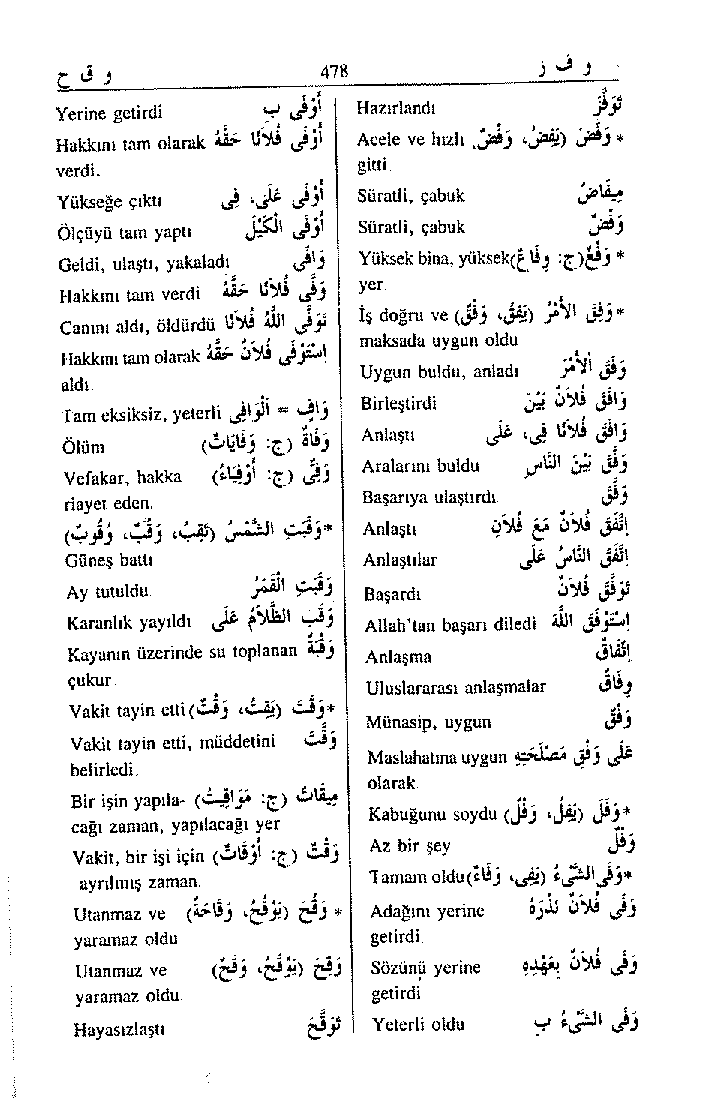 و ف ز 478 و ق ح
تَوَفَّزَ Hazırlandı
* وَفَضَ (يَفِضُ، وَفْضٌ) Acele ve hızlı
gitti.
مِيفَاضٌ Süratli, çabuk
وَفْضٌ Süratli, çabuk
* وَفْعٌ (ج: وِفَاعٌ) Yüksek bina, yüksek
yer.
* وَفِقَ الأَمْرُ (يَفِقُ، وَفْقٌ) İş doğru ve
maksada uygun oldu
وَفِقَ الأَمْرَ Uygun buldu, anladı
وَافَقَ فُلاَنٌ بَيْنَ Birleştirdi
وَافَقَ فُلاَنًا فِى، عَلَى Anlaştı
وَفَّقَ بَيْنَ النَّاسِ Aralarını buldu
وَفَّقَ Başarıya ulaştırdı.
اِتَّفَقَ فُلاَنٌ مَعَ فُلاَنٍ Anlaştı
اِتَّفَقَ النَّاسُ عَلَى Anlaştılar
تَوَفَّقَ فُلاَنٌ Başardı
اِسْتَوْفَقَ اللّٰهَ Allah'tan başarı diledi
اِتِّفَاقٌ Anlaşma
وِفَاقٌ Uluslararası anlaşmalar
وَفْقٌ Münasip, uygun
عَلَى وَفْقِ مَصْلَحَتِهِ Maslahatına uygun
olarak.
* وَفَلَ (يَفِلُ، وَفْلٌ) Kabuğunu soydu
وَفْلٌ Az bir şey
* وَفَى الشَّىْءُ (يَفِى، وَفَاءٌ) Tamam oldu
وَفَى فُلاَنٌ نَذْرَهُ Adağını yerine
getirdi.
وَفَى فُلاَنٌ بِعَهْدِهِ Sözünü yerine
getirdi
وَفَى الشَّىْءُ بِ Yeterli oldu
أَوْفَى بِ Yerine getirdi
أَوْفَى فُلاَنًا حَقَّهُ Hakkını tam olarak
verdi.
أَوْفَى عَلَى، فِى Yükseğe çıktı
أَوْفَى الْكَيْلَ Ölçüyü tam yaptı
وَافَى Geldi, ulaştı, yakaladı
وَفَّى فُلاَنًا حَقَّهُ Hakkını tam verdi
تَوَفَّى اللّٰهُ فُلاَنًا Canını aldı, öldürdü
اِسْتَوْفَى فُلاَنٌ حَقَّهُ Hakkını tam olarak
aldı.
وَافٍ = اَلْوَافِى Tam eksiksiz, yeterli
وَفَاةٌ (ج: وَفَيَاتٌ) Ölüm
وَفِىٌّ (ج: أَوْفِيَاءُ) Vefakar, hakka
riayet eden.
* وَقَبَتِ الشَّمْسُ (تَقِبُ، وَقْبٌ، وُقُوبٌ)
Güneş battı
وَقَبَ الْقَمَرُ Ay tutuldu.
وَقَبَ الظَّلاَمُ عَلَى Karanlık yayıldı
وَقْبَةٌ Kayanın üzerinde su toplanan
çukur.
* وَقَتَ (يَقِتُ، وَقْتٌ) Vakit tayin etti
وَقَّتَ Vakit tayin etti, müddetini
belirledi.
مِيقَاتٌ (ج: مَوَاقِيتُ) Bir işin yapıla-
cağı zaman, yapılacağı yer
وَقْتٌ (ج: أَوْقَاتٌ) Vakit, bir işi için
ayrılmış zaman.
* وَقُحَ (يَوْقُحُ، وَقَاحَةٌ) Utanmaz ve
yaramaz oldu
وَقِحَ (يَوْقَحُ، وَقَحٌ) Utanmaz ve
yaramaz oldu.
تَوَقَّحَ Hayasızlaştı